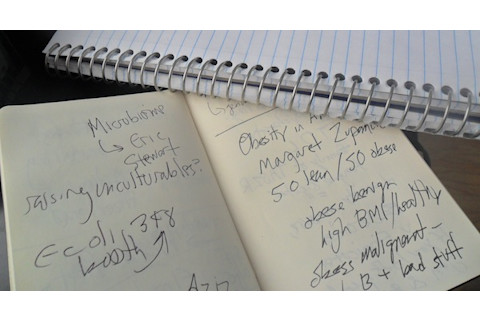 Microbiome
Eric
Stewart
raising unculturables?
E coli 378
booth
Obesity in
Margaret
50 lean / 50 obese
obese benign
high BMI / healthy
obese malignant -
B + bad stuff